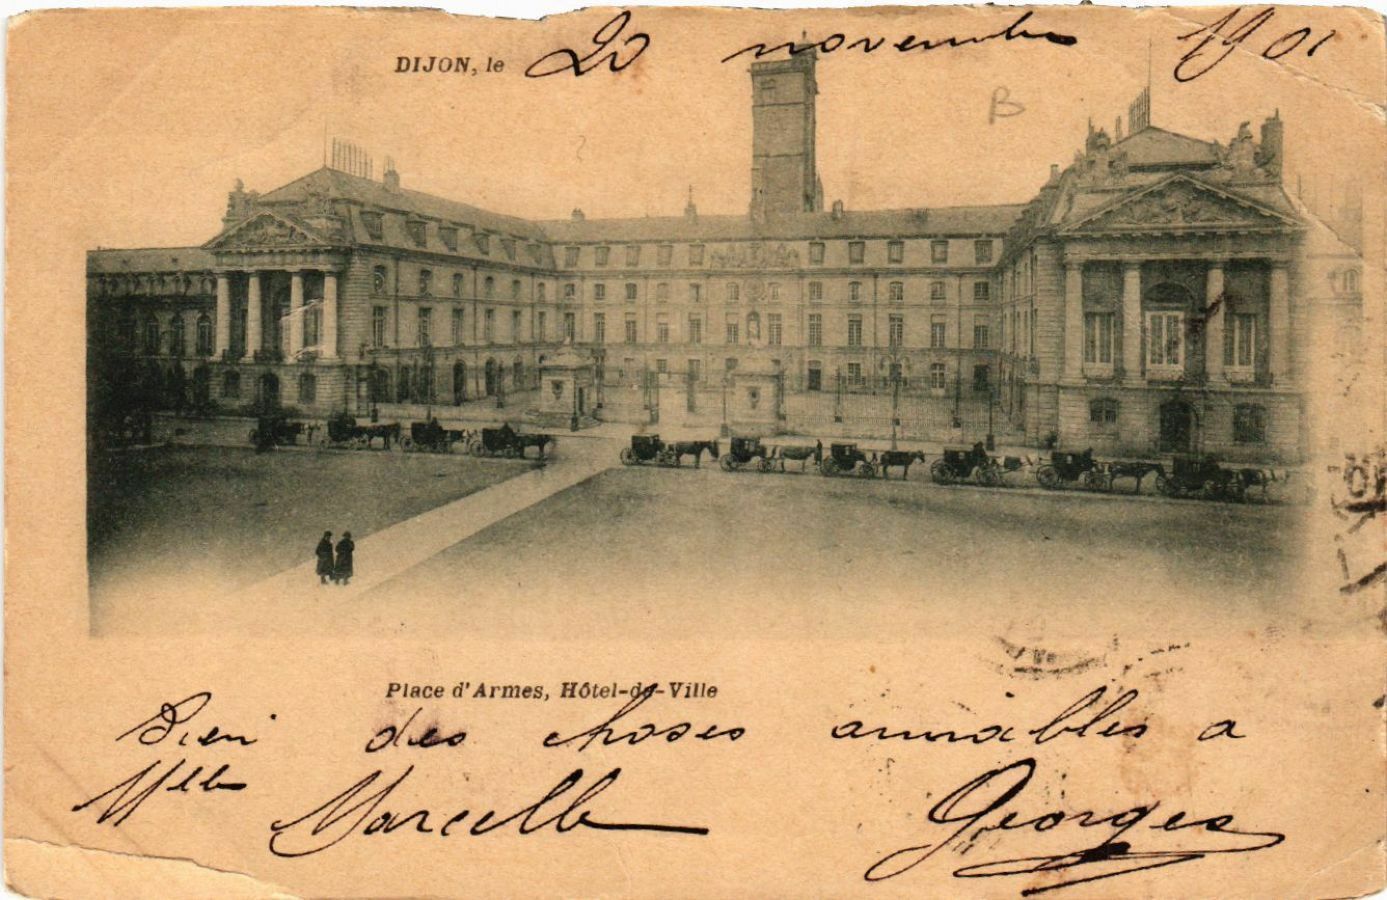 DIJON, le 20 novembre 1901
B
Place d'Armes, Hôtel-de-Ville
Bien des choses aimables a
Mlle Marcelle Georges